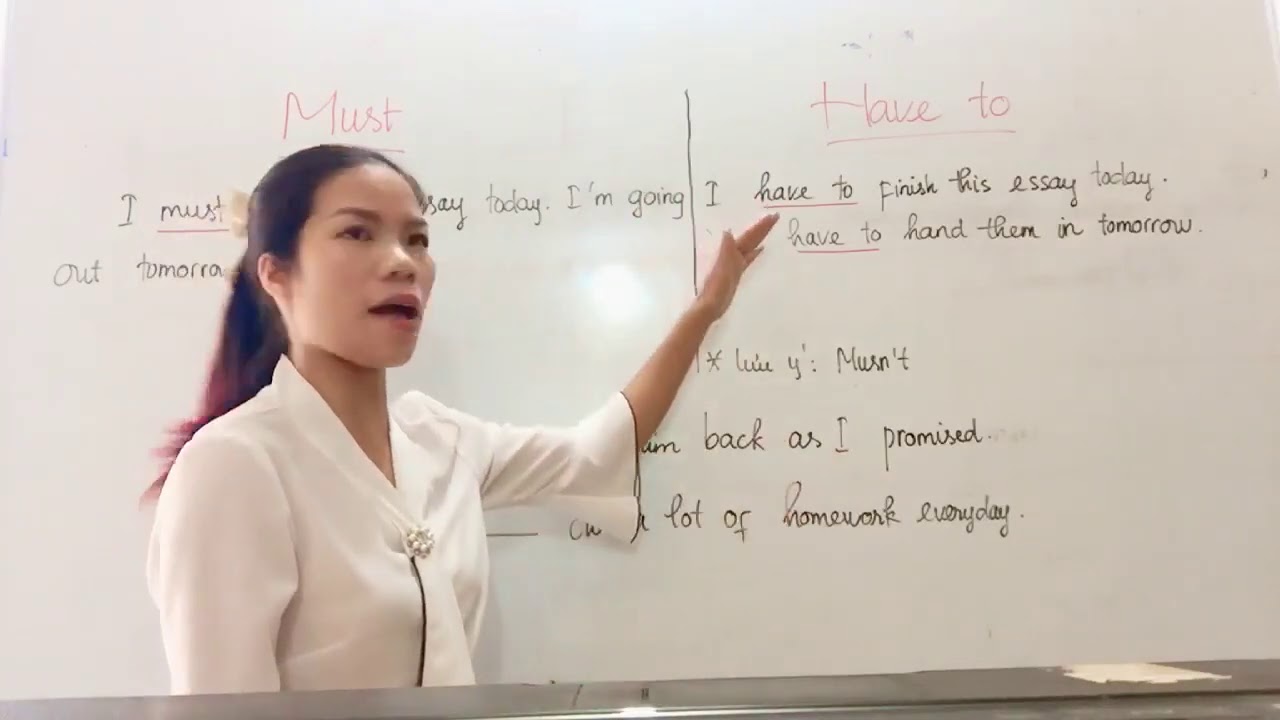 Must
I must say today. I'm going
out tomorro
Have to
I have to finish this essay today.
have to hand them in tomorrow.
* lưu ý: Musn't
back as I promised.
lot of homework everyday.